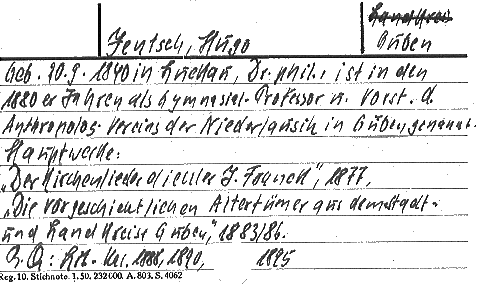 Jentsch, Hugo
Landkreis
Guben
Geb. 20.9.1840 in Luckau, Dr. phil., ist in den
1880er Jahren als Gymnasial-Professor u. Vorst. d.
Anthropolog. Vereins der Niederlausitz in Guben genannt.
Hauptwerke:
„Der Kirchenliederdichter J. Franck", 1877,
„Die vorgeschichtlichen Altertümer aus dem Stadt-
und Landkreise Guben", 1883/86.
1888, 1890, 1895
Reg. 10. Stichnote. 1. 50. 232 000. A. 803. S. 4062